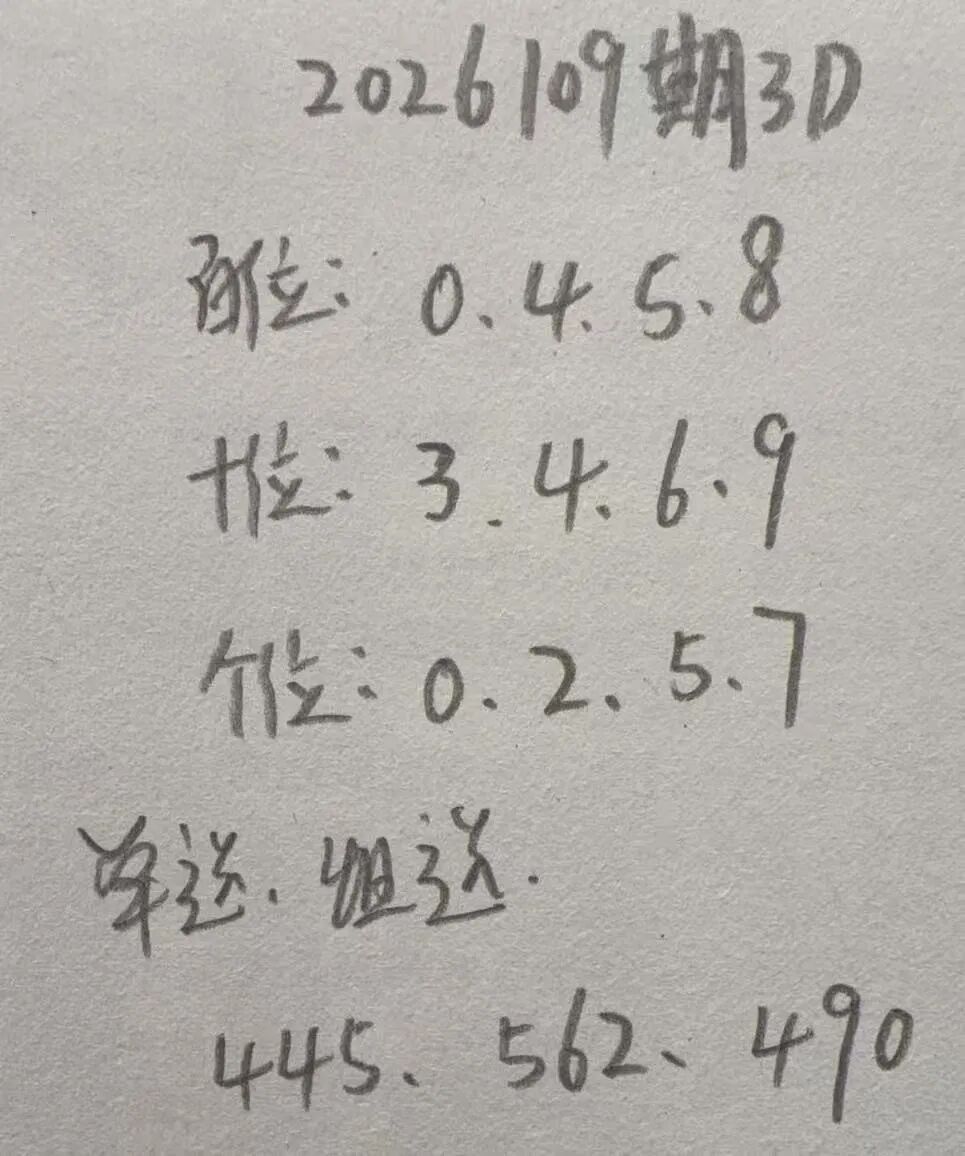 2026109期3D
百位: 0.4.5.8
十位: 3.4.6.9
个位: 0.2.5.7
单选.组选.
445、562、490